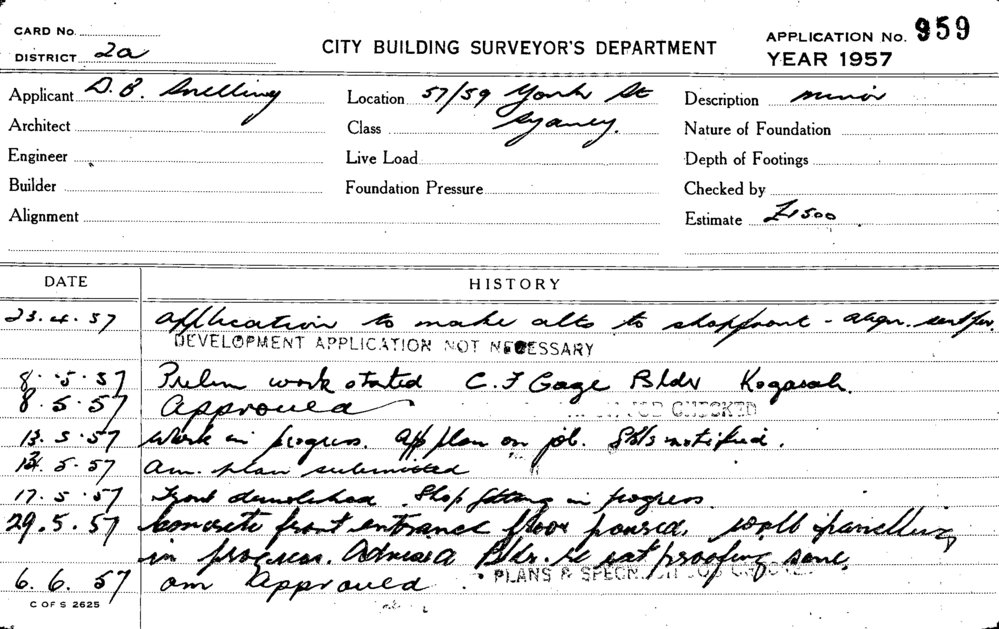 CARD No.
DISTRICT 2a
CITY BUILDING SURVEYOR'S DEPARTMENT
APPLICATION No. 959
YEAR 1957
Applicant D. B. Snelling
Location 57/59 York St
Sydney.
Description minor
Architect
Class
Nature of Foundation
Engineer
Live Load
Depth of Footings
Builder
Foundation Pressure
Checked by
Alignment
Estimate £1500
DATE HISTORY
23.4.57 Application to make alts to shopfront - align. sent for.
DEVELOPMENT APPLICATION NOT NECESSARY
8.5.57 Prelim work started C. F Gage Bldr Kogarah.
8.5.57 Approved
JOB CHECKED
13.5.57 Work in progress. App plan on job. notified.
5.57 Am. plan submitted
17.5.57 Front demolished Shop fitting in progress
29.5.57 Concrete front entrance floor poured, wall panelling
in progress. Advised Bldr. re rat proofing same.
PLANS & SPECN. JOB CHECKED
6.6.57 am Approved
C OF S 2625